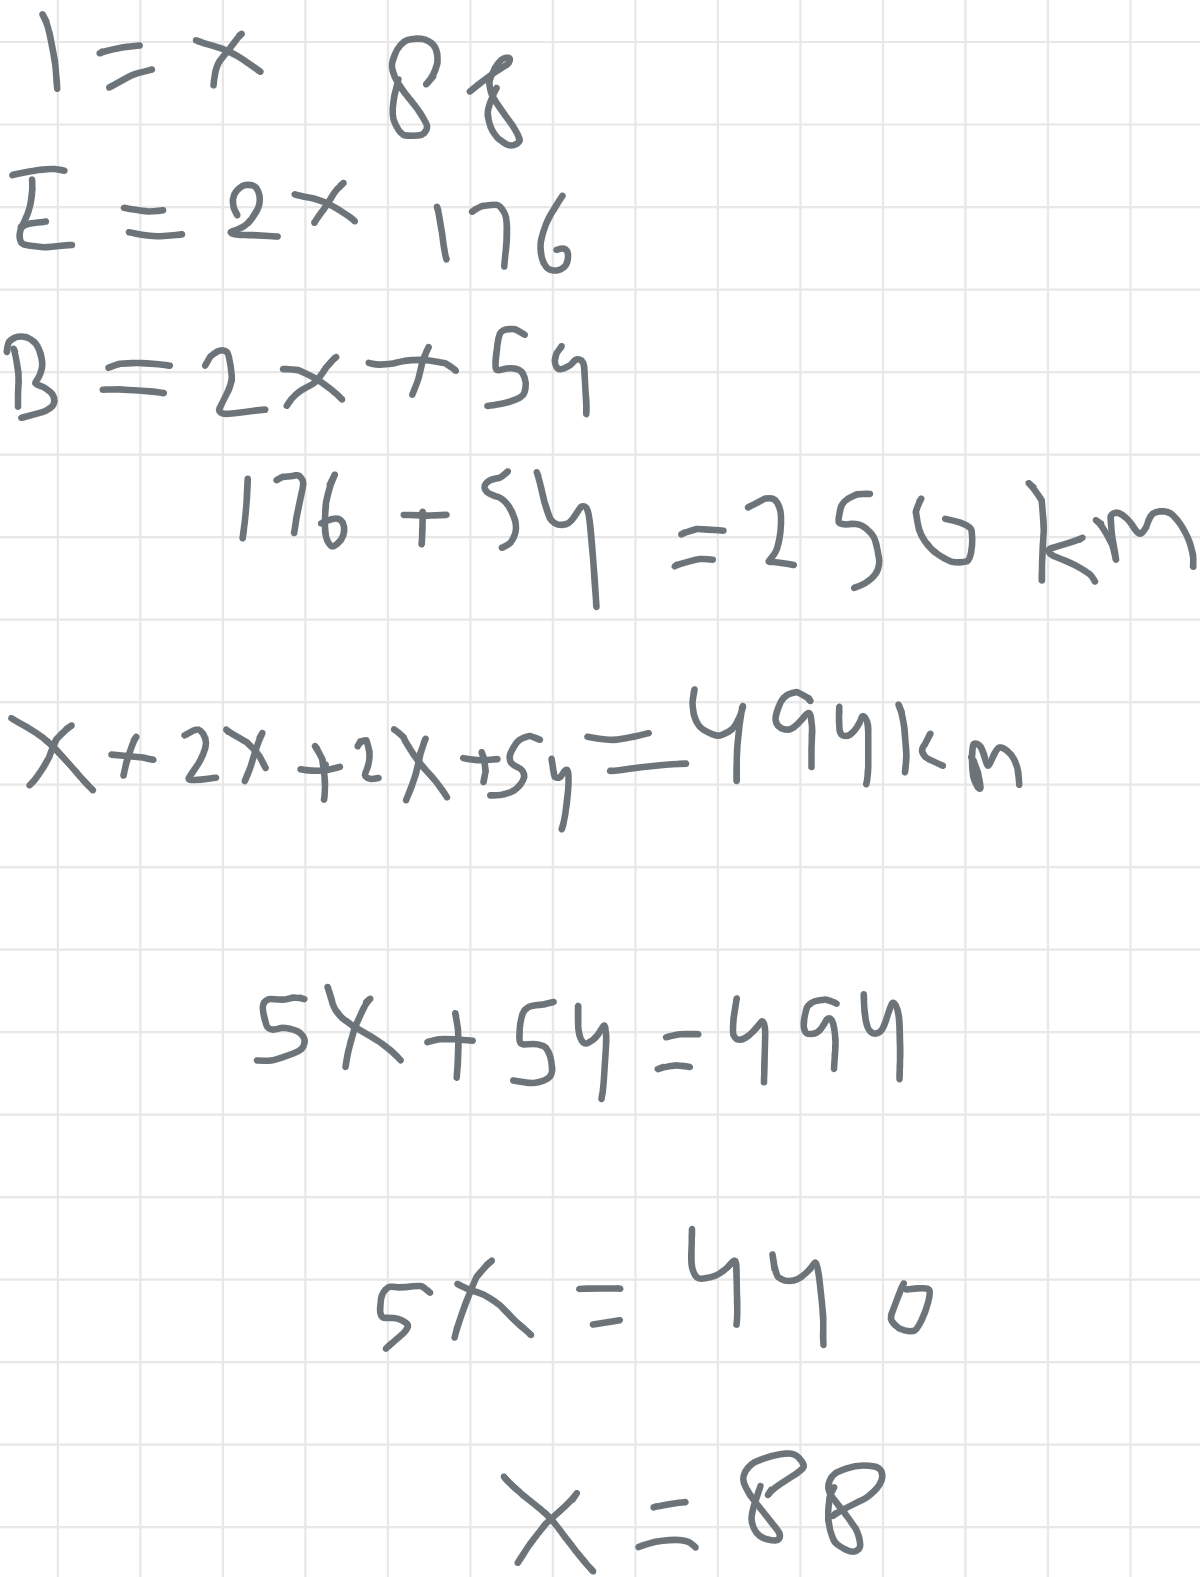 I = x 88
E = 2x 176
B = 2x + 54
176 + 54 = 250 km
x + 2x + 2x + 54 = 494 km
5x + 54 = 494
5x = 440
x = 88